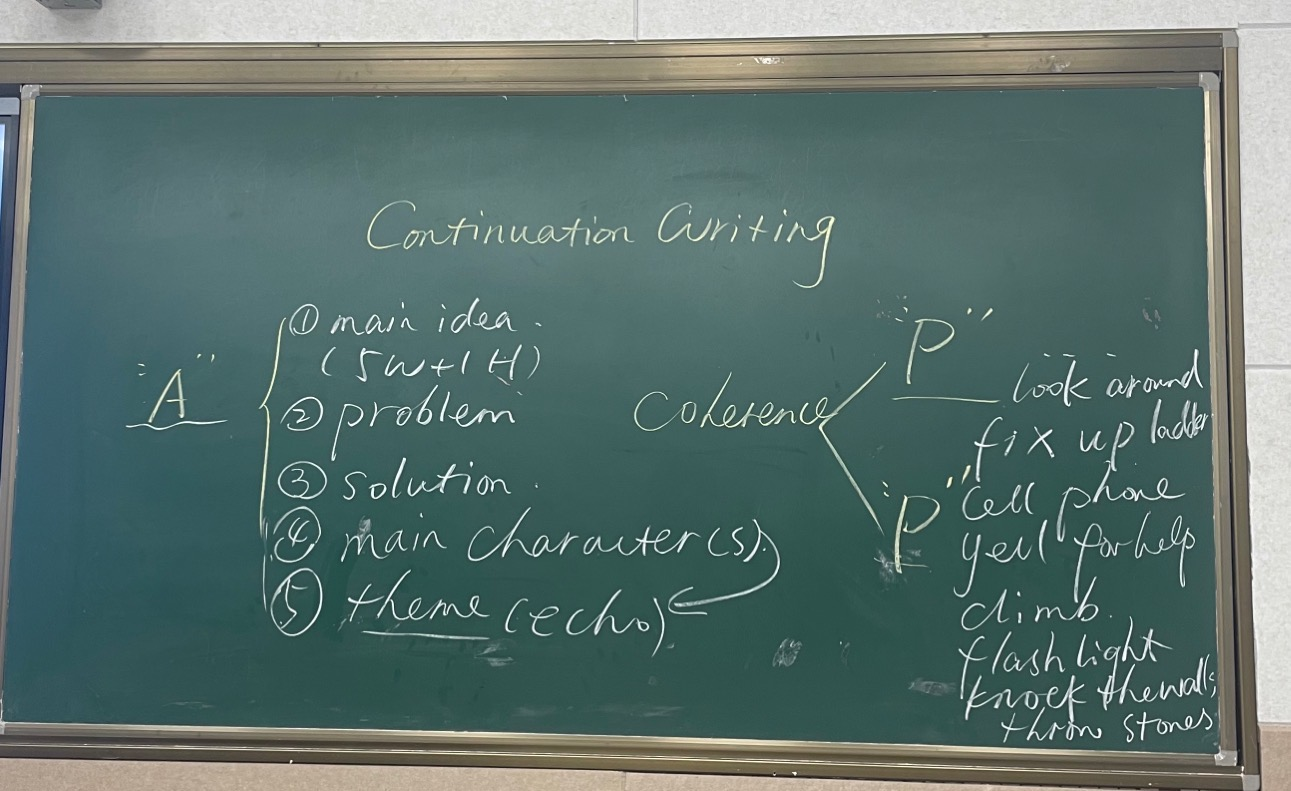 Continuation Writing
"A"
① main idea.
(5W+1H)
② problem
③ solution.
④ main character(s).
⑤ theme (echo).
Coherence
"P"
"P"
look around
fix up ladder
cell phone
yell for help
climb.
flash light
knock the walls,
throw stones